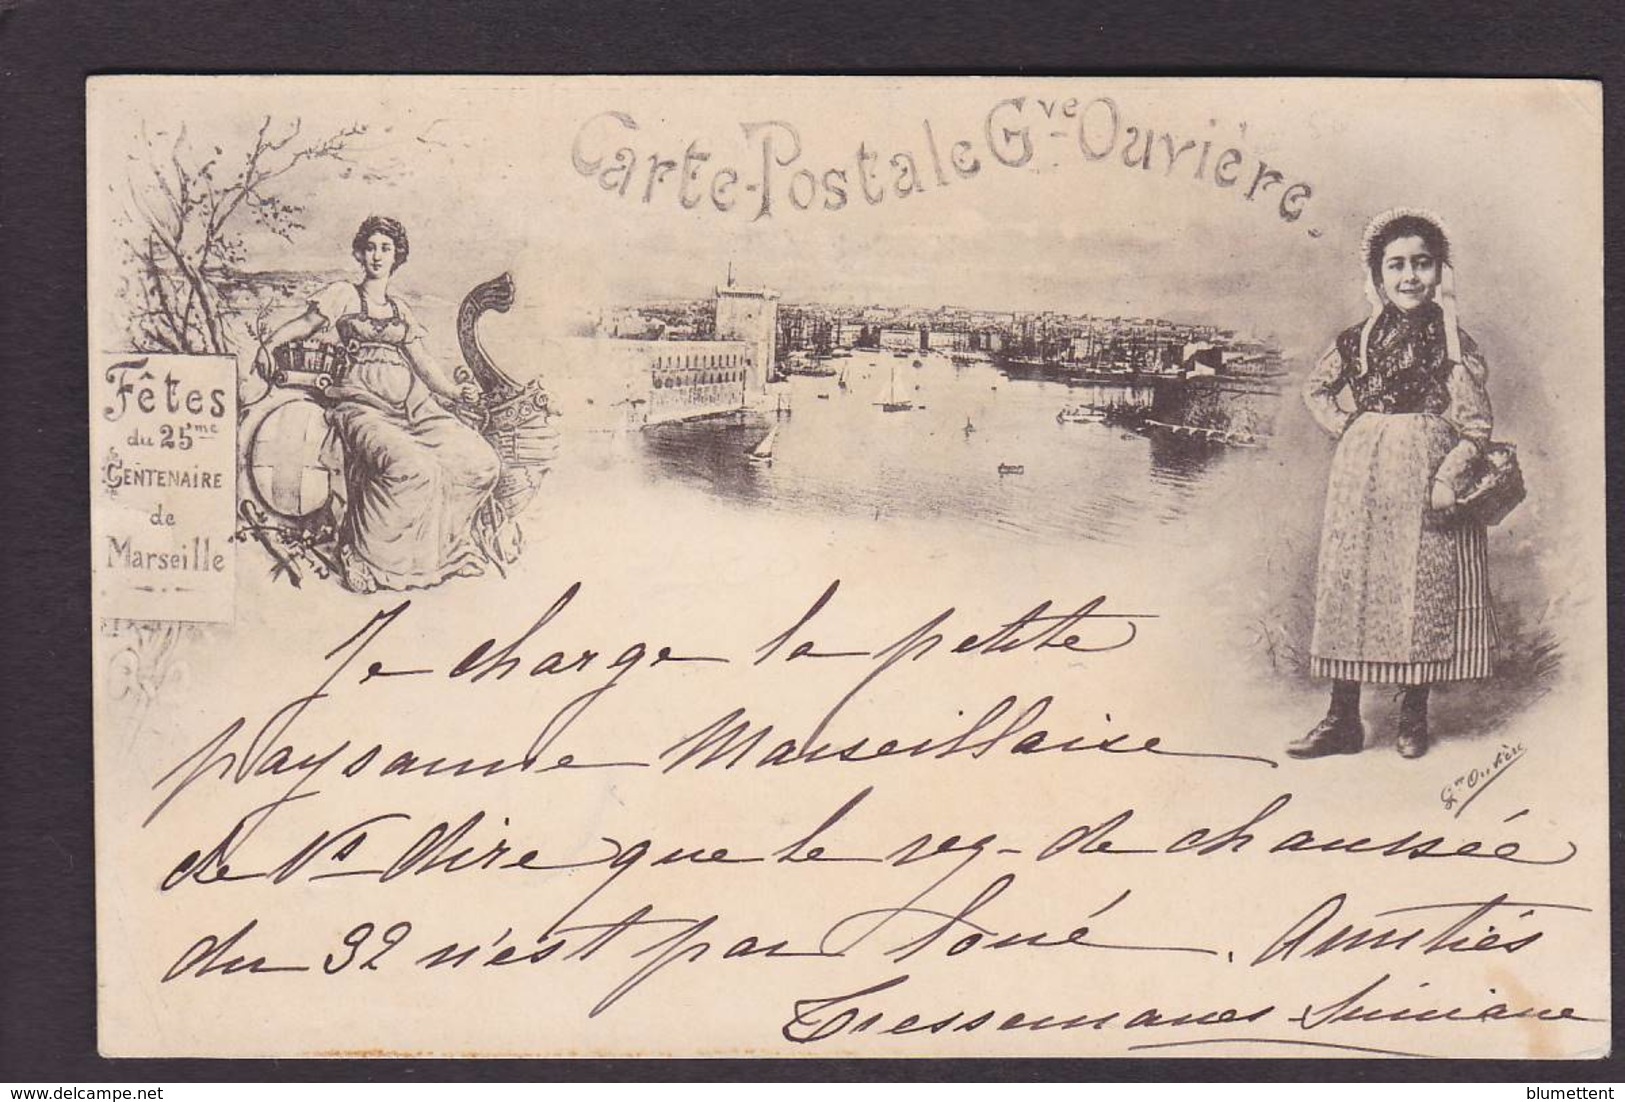 Carte-Postale Gve Ouvière.
Fêtes
du 25me
CENTENAIRE
de
Marseille
Je charge la petite
paysanne Marseillaise
de Vs dire que le reg-de chaussée
du 32 n'est pas loué. Amitiés
Tressemanes Simiane
Gve Ouvière
blumettent